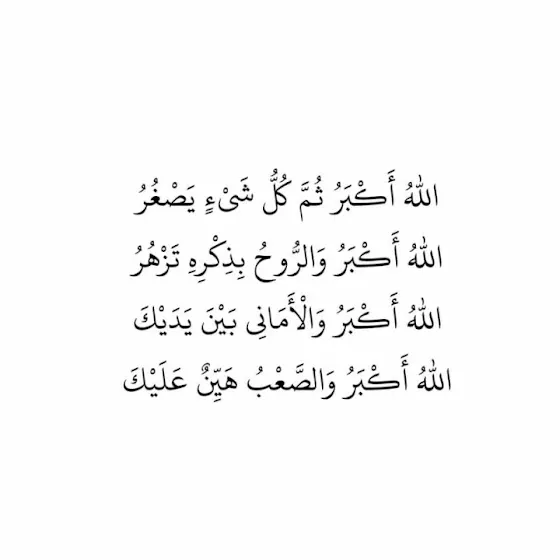 اللهُ أَكْبَرُ ثُمَّ كُلُّ شَىْءٍ يَصْغُرُ
اللهُ أَكْبَرُ وَالرُّوحُ بِذِكْرِهِ تَزْهُرُ
اللهُ أَكْبَرُ وَالْأَمَانِى بَيْنَ يَدَيْكَ
اللهُ أَكْبَرُ وَالصَّعْبُ هَيِّنٌ عَلَيْكَ